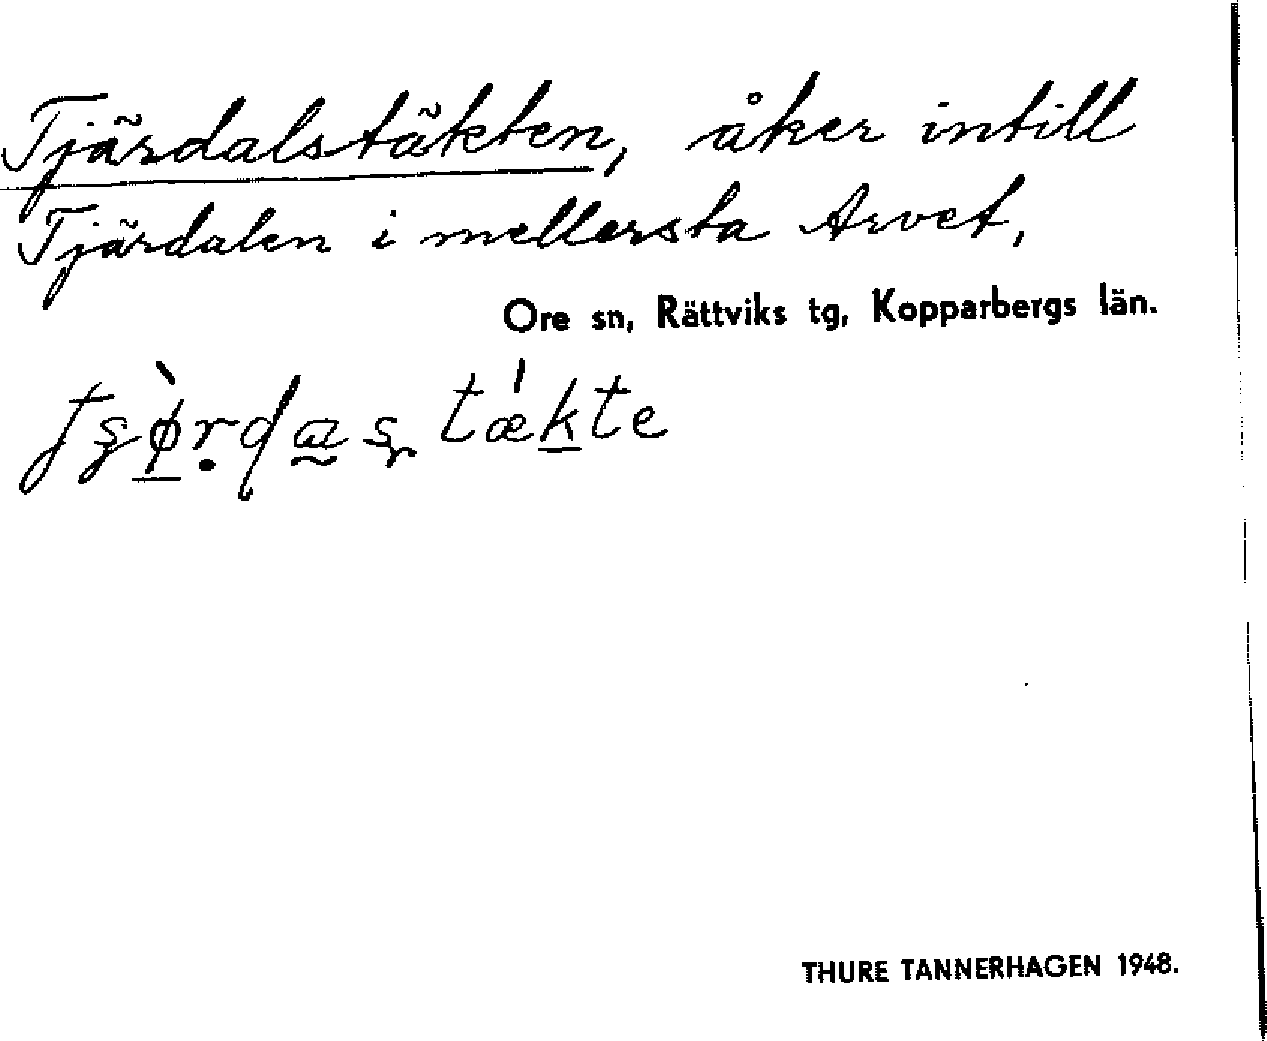 Tjärdalstäkten, åker intill
Tjärdalen i mellersta Arvet,
Ore sn, Rättviks tg, Kopparbergs län.
THURE TANNERHAGEN 1948.